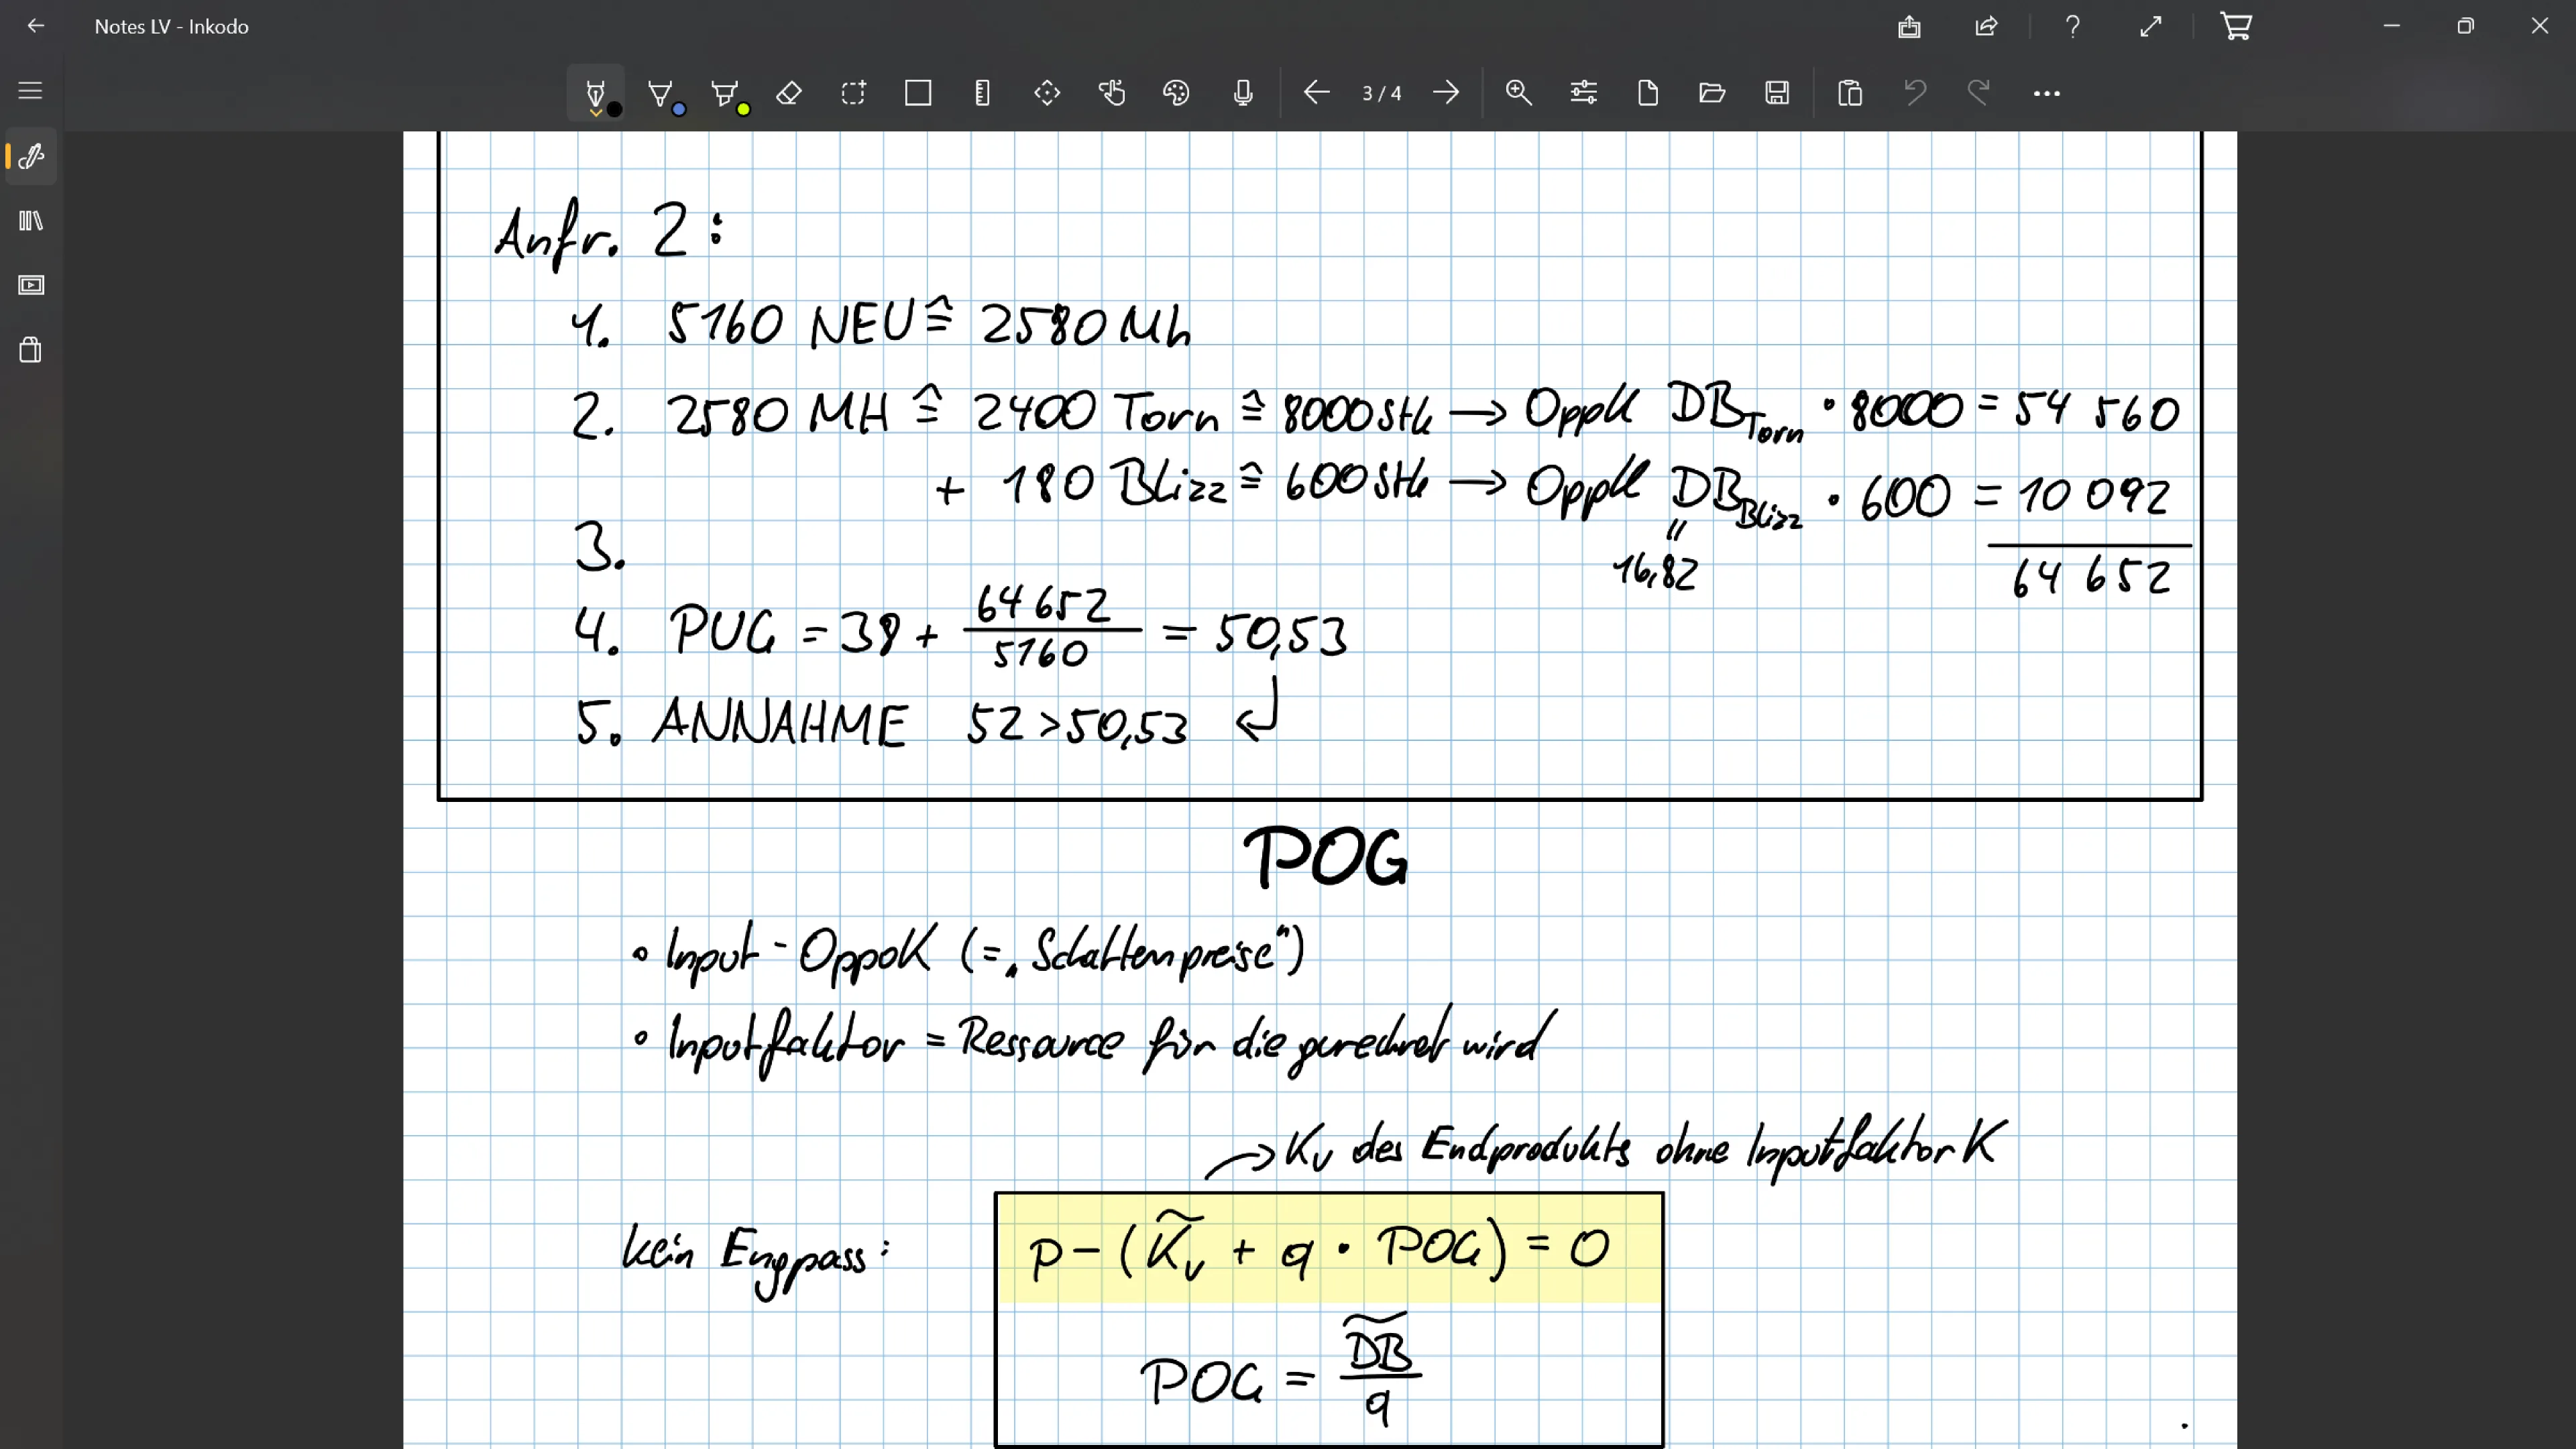 Notes LV - Inkodo
3 / 4
Anfr. 2:
1. 5160 NEU ≙ 2580 Mh
2. 2580 MH ≙ 2400 Torn ≙ 8000 Stk → OppK DB_Torn · 8000 = 54 560
+ 180 Blizz ≙ 600 Stk → OppK DB_Blizz · 600 = 10 092
"
16,82
64 652
3.
4. PUG = 38 + 64 652 / 5160 = 50,53
5. ANNAHME 52 > 50,53 ↵
POG
• Input - OppoK (= „Schattenpreise")
• Inputfaktor = Ressource für die gerechnet wird
→ Kv des Endprodukts ohne Inputfaktor K
kein Engpass:
p - (K̃v + q · POG) = 0
POG = D͠B / q